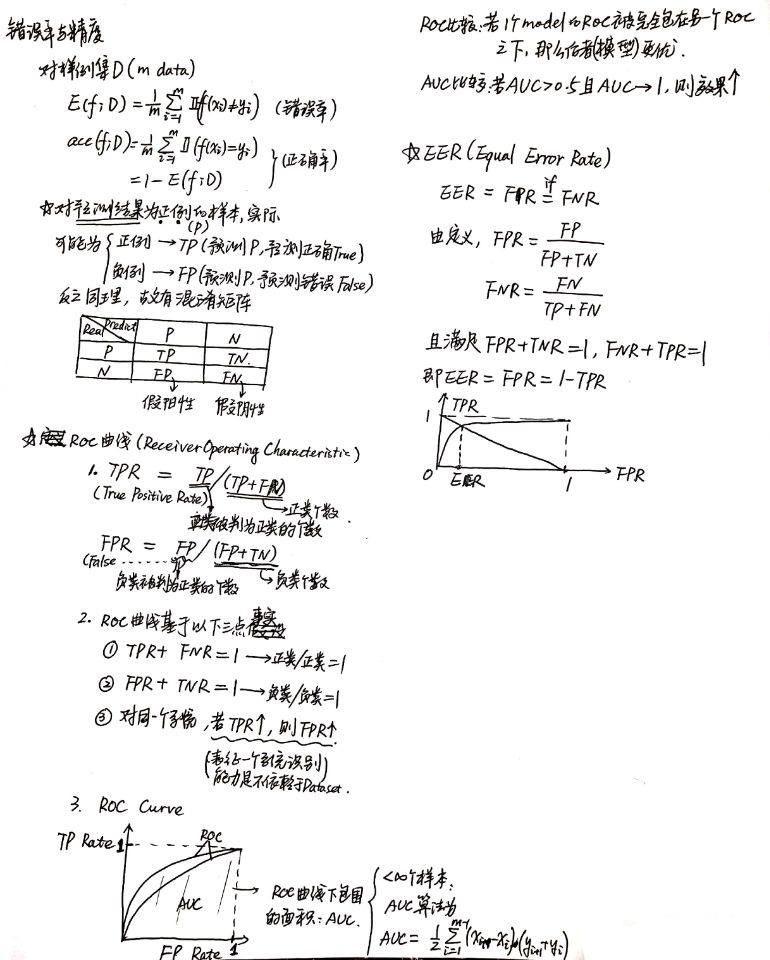 错误率与精度
对样例集D(m data)
E(f;D) = 1/m ∑_{i=1}^{m} 𝕀(f(xi)≠yi) (错误率)
acc(f;D) = 1/m ∑_{i=1}^{m} 𝕀(f(xi)=yi)
= 1-E(f;D) } (正确率)
☆对预测结果为正例的样本,实际
(P)
可能为 { 正例 → TP (预测P,预测正确True)
负例 → FP (预测P,预测错误False)
反之同理,故有混淆矩阵
Real Predict P N
P TP TN.
N FP FN
假阳性 假阴性
☆ ROC曲线(Receiver Operating Characteristic)
1. TPR = TP/(TP+FN)
(True Positive Rate) → 正类个数.
正类被判为正类的个数
FPR = FP/(FP+TN)
(False ........ → 负类个数
负类被判为正类的个数
2. ROC曲线基于以下三点事实
① TPR+FNR=1 → 正类/正类=1
② FPR+TNR=1 → 负类/负类=1
③ 对同一个系统,若TPR↑,则FPR↑
(表征一个系统识别
能力是不依赖于Dataset.)
3. ROC Curve
TP Rate 1 ROC
AUC → ROC曲线下包围
的面积:AUC.
FP Rate 1
个样本,
AUC算法为
AUC = 1/2 ∑_{i=1}^{m-1} (x_{i+1}-x_i)·(y_{i+1}+y_i)
ROC比较:若1个model的ROC被完全包在另一个ROC
之下,那么后者(模型)更优.
AUC比较:若AUC>0.5且AUC→1,则效果↑
☆EER(Equal Error Rate)
EER = FPR if = FNR
由定义, FPR = FP/(FP+TN)
FNR = FN/(TP+FN)
且满足FPR+TNR=1, FNR+TPR=1
即EER = FPR = 1-TPR
1 TPR
0 EER 1 FPR